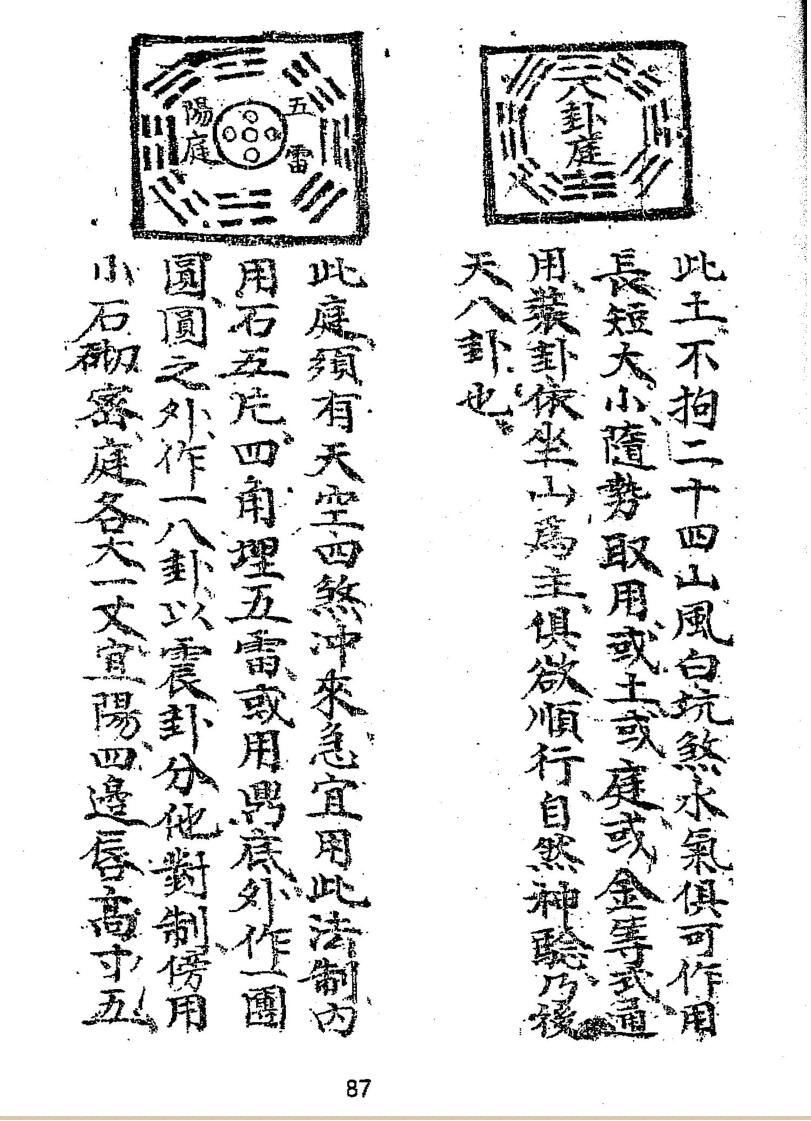 八卦庭
此土不拘二十四山風白坑煞水氣俱可作用
長短大小隨勢取用或土或庭或金等式通
用裝卦依坐山為主俱欲順行自然神驗乃後
天八卦也
五雷
陽庭
此庭須有天空四煞冲來急宜用此法制內
用石五片四角埋五雷或用鼎底外作一團
圓圓之外作一八卦以震卦分他對制傍用
小石砌密庭各大一丈宜陽四邊唇高寸五
87